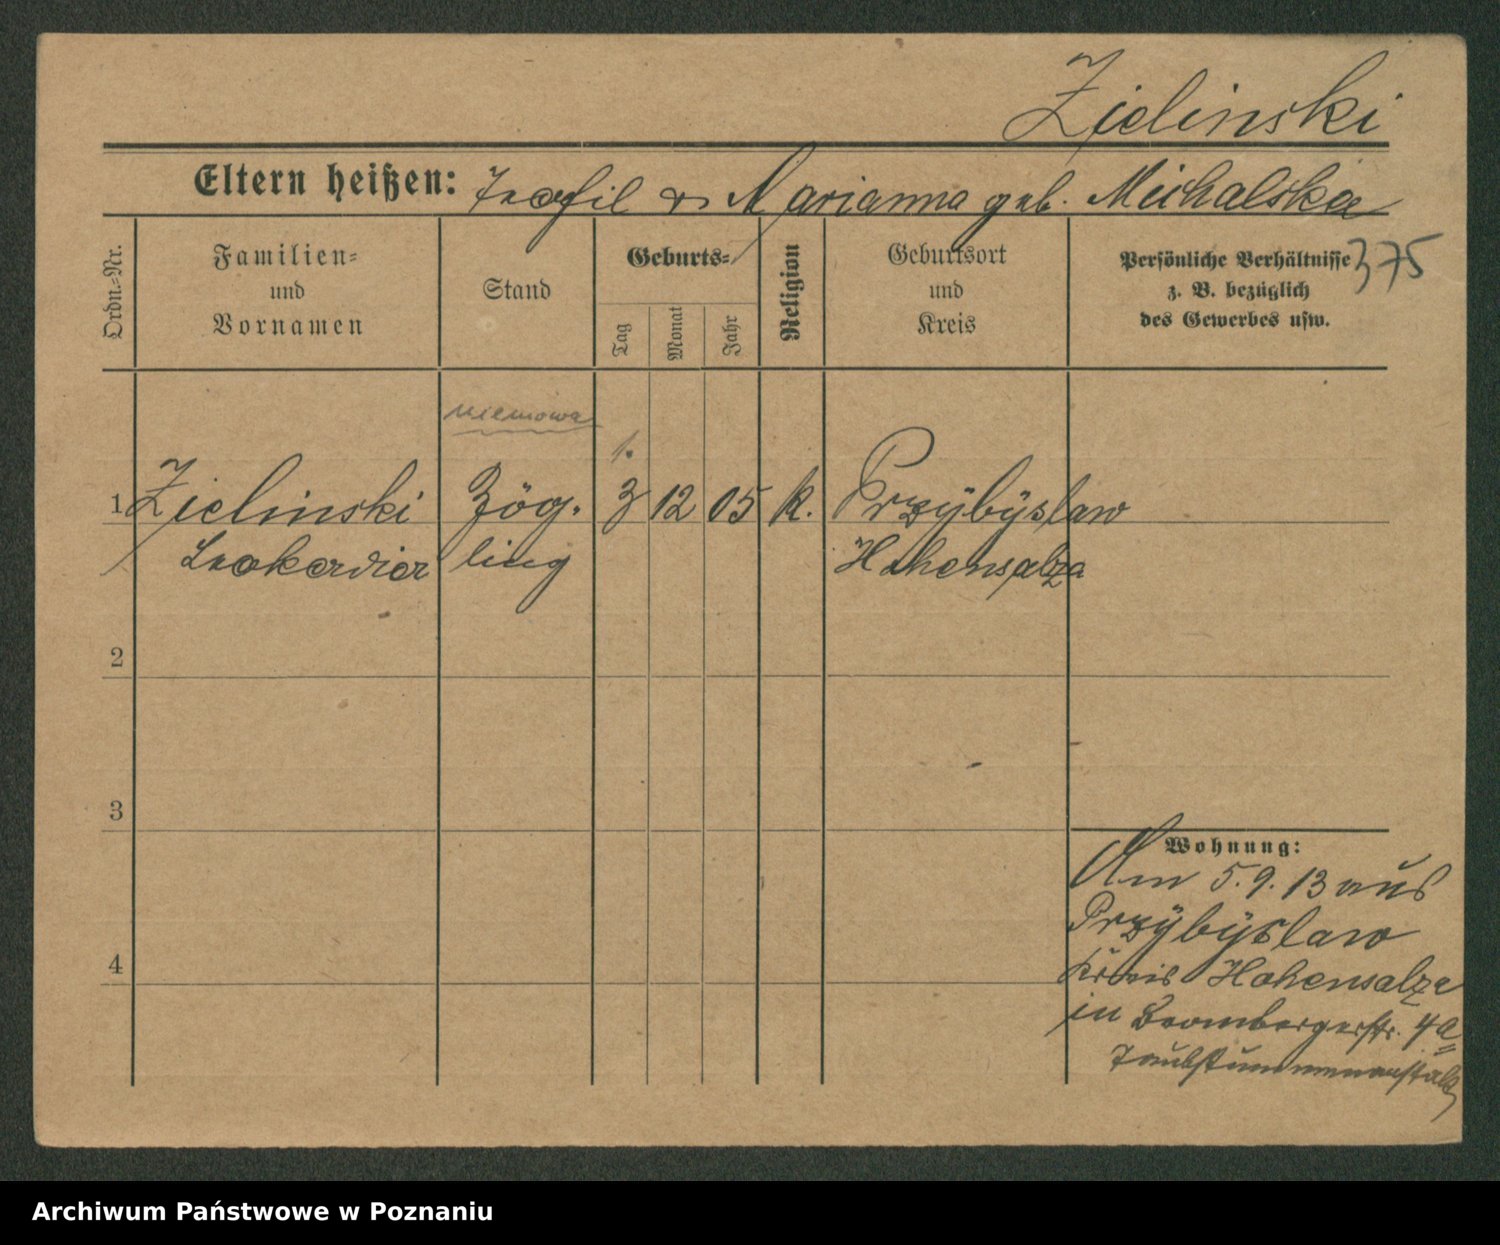 Zielinski
Eltern heißen: Teofil u. Marianna geb. Michalska
375
Ordn.=Nr.
Familien=
und
Vornamen
Stand
Geburts=
Tag
Monat
Jahr
Religion
Geburtsort
und
Kreis
Persönliche Verhältnisse
z. B. bezüglich
des Gewerbes usw.
niemowa
1.
1 Zielinski Zög. 3 12 05 k. Przybyslaw
Leokardia ling Hohensalza
2
3
4
Wohnung:
Am 5.9.13 aus
Przybyslaw
Kreis Hohensalza
in Brombergerstr. 4a
Taubstummenanstalt
Archiwum Państwowe w Poznaniu